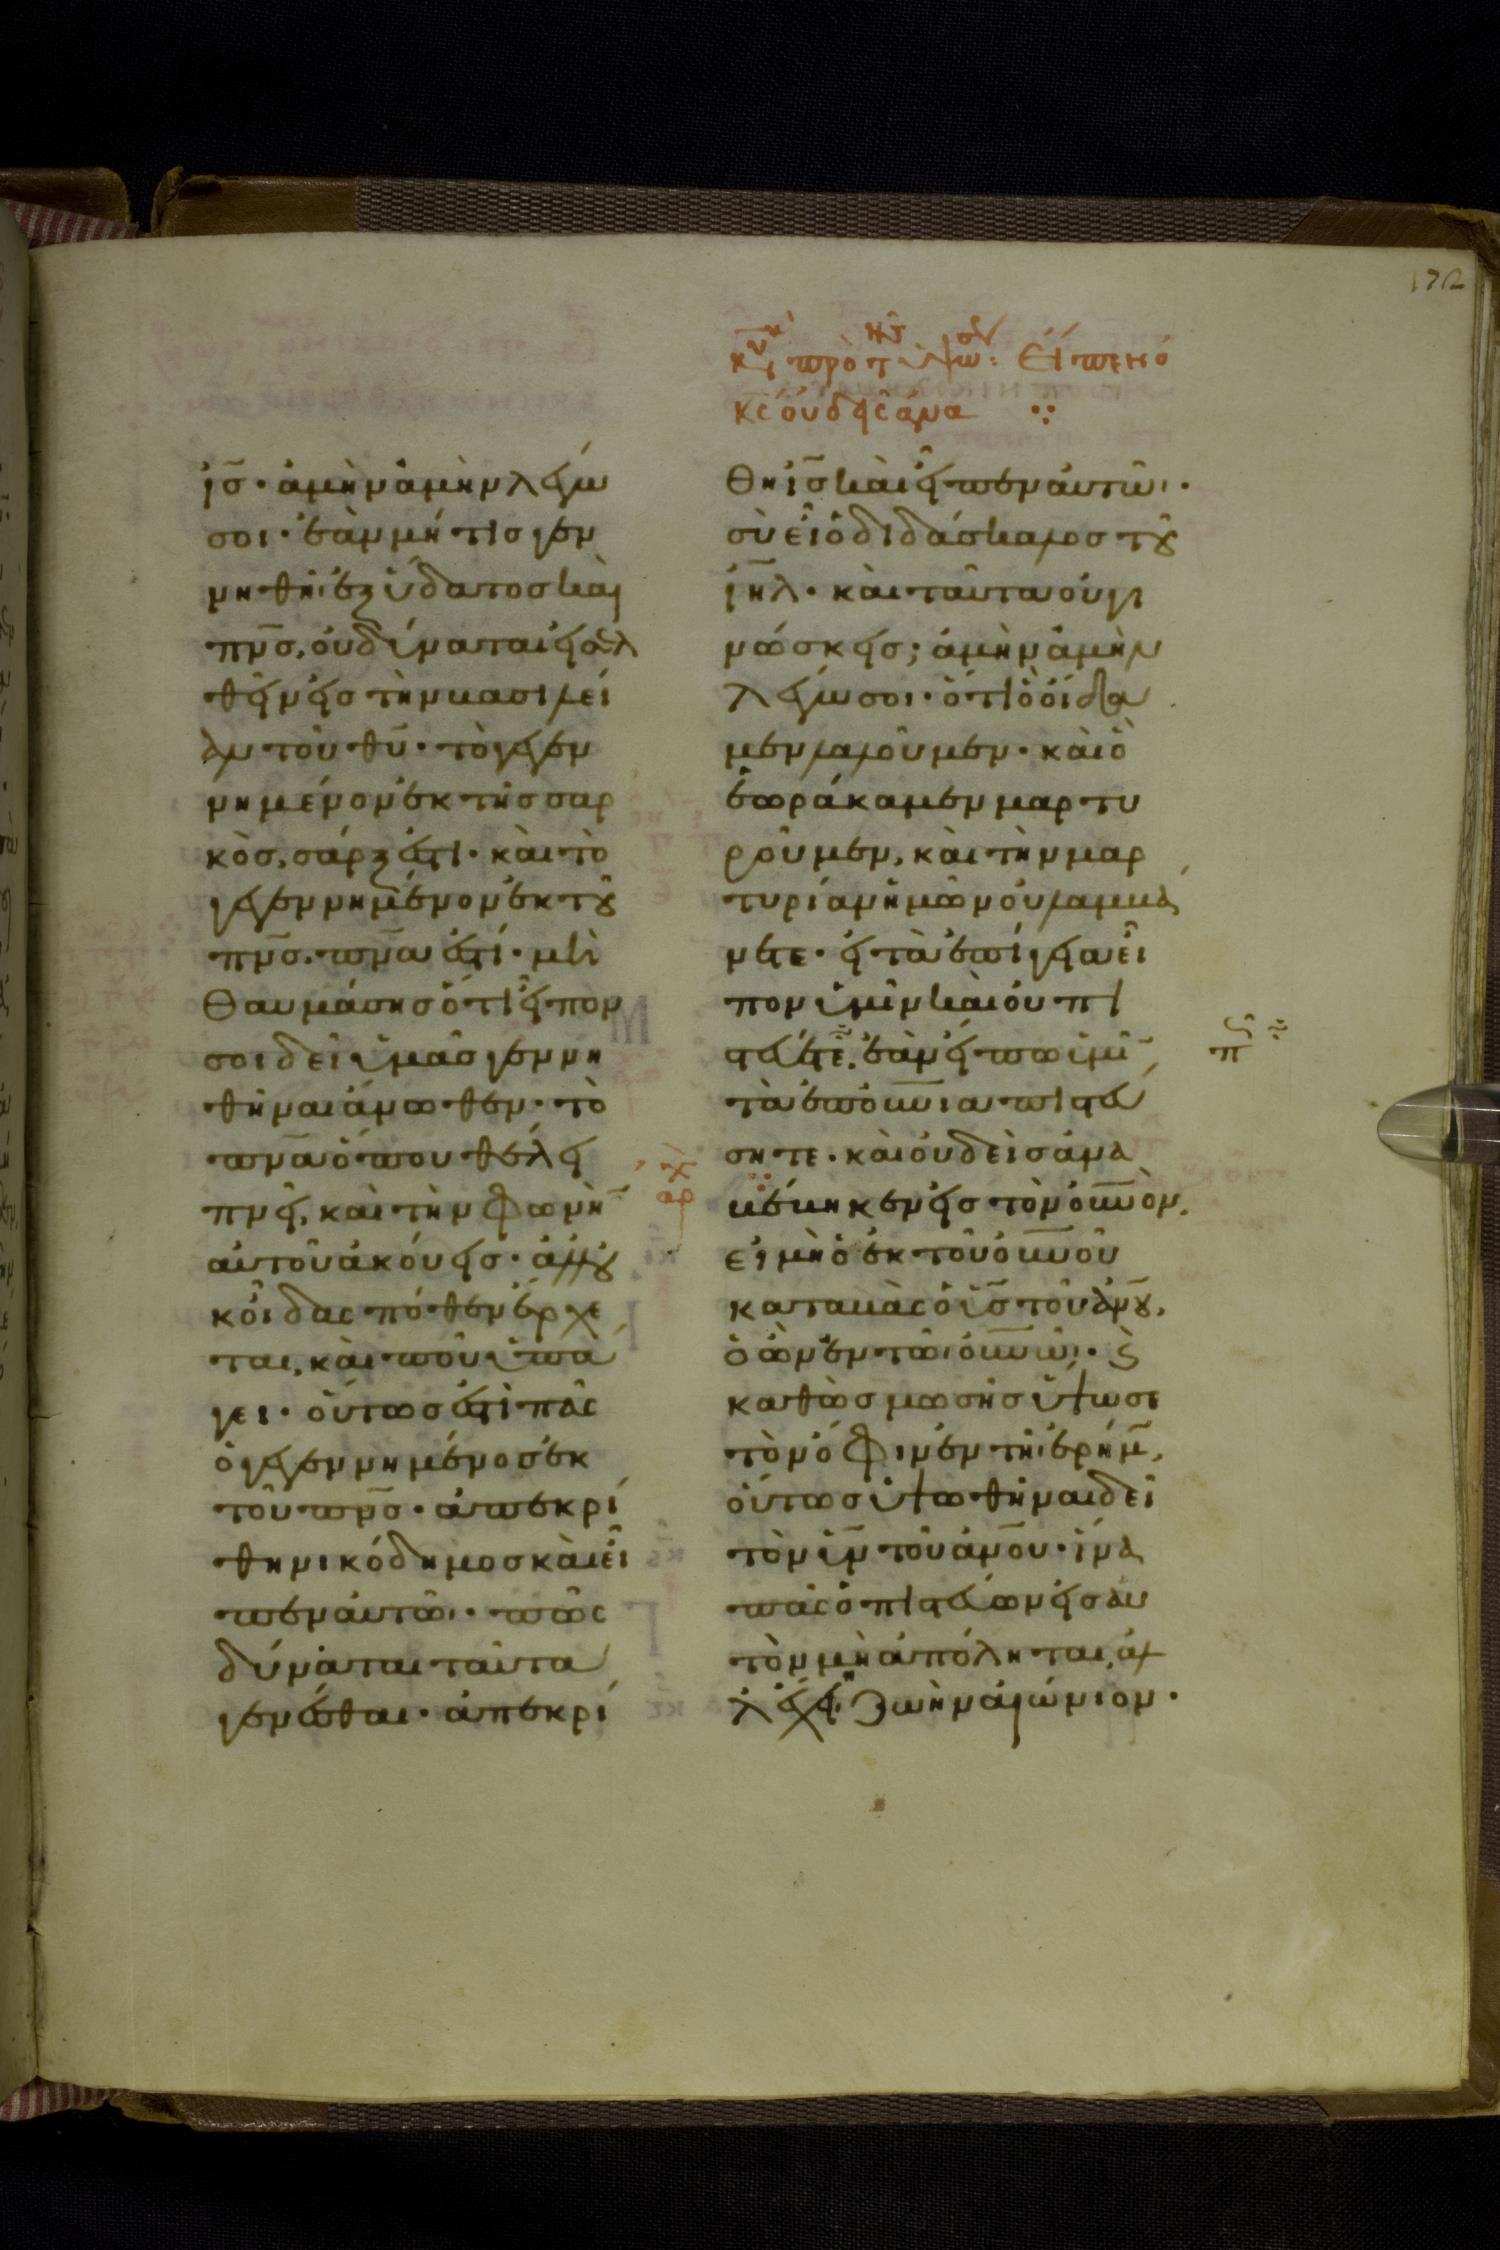 172
κυ πρὸ τ ὑψω: Εἶπεν ὁ
κς οὐδεὶς ἀνα
ις̅· ἀμὴν ἀμὴν λέγω
σοι· ἐὰν μή τις γεν
νηθῆι ἐξ ὕδατος καὶ
πν̅ς, οὐ δύναται εἰσελ
θεῖν εἰς τὴν βασιλεί
αν τοῦ θυ̅· τὸ γεγεν
νημένον ἐκ τῆς σαρ
κὸς, σάρξ ἐστι· καὶ τὸ
γεγεννημένον ἐκ τοῦ
πν̅ς. πν̅α ἐστί· μὴ
θαυμάσης ὅτι εἶπόν
σοι δεῖ ὑμᾶς γεννη
θῆναι ἄνωθεν· τὸ
πν̅α ὅπου θέλει
πνεῖ, καὶ τὴν φωνὴ̅
αὐτοῦ ἀκούεις· ἀλλ' οὐ
κ οἶδας πόθεν ἔρχε
ται, καὶ ποῦ ὑπά
γει· οὕτως ἐστὶ πᾶς
ὁ γεγεννημένος ἐκ
τοῦ πν̅ς· ἀπεκρί
θη νικόδημος καὶ εἶ
πεν αὐτῶι· πῶς
δύναται ταῦτα
γενέσθαι· ἀπεκρί
θη ις̅ καὶ εἶπεν αὐτῶι·
σὺ εἶ ὁ διδάσκαλος τοῦ
ιη̅λ· καὶ ταῦτα οὐ γι
νώσκεις; ἀμὴν ἀμὴν
λέγω σοι· ὅτι ὃ οἴδα
μεν λαλοῦμεν· καὶ ὃ
ἑωράκαμεν μαρτυ
ροῦμεν, καὶ τὴν μαρ
τυρίαν ἡμῶν οὐ λαμβά
νετε· εἰ τὰ ἐπίγεια εἶ
πον ὑμῖν καὶ οὐ πι
στεύετε. ἐὰν εἴπω ὑμῖ̅
τὰ ἐπουν̅ια πιστεύ
σητε· καὶ οὐδεὶς ἀνα
βέβηκεν εἰς τὸν ουν̅όν,
εἰ μὴ ὁ ἐκ τοῦ ουν̅οῦ
καταβὰς ὁ υς̅ τοῦ αν̅ου,
ὁ ὢν ἐν τῶι ουν̅ῶι· Ϛ
καθὼς μωσῆς ὕψωσε
τὸν ὄφιν ἐν τῆι ἐρήμ̅,
οὕτως ὑψωθῆναι δεῖ
τὸν υν̅ τοῦ αν̅ου· ἵνα
πᾶς ὁ πιστεύων εἰς αὐ
τὸν μὴ ἀπόληται, ἀλ
λ' ἔχηι ζωὴν αἰώνιον·
αρχ